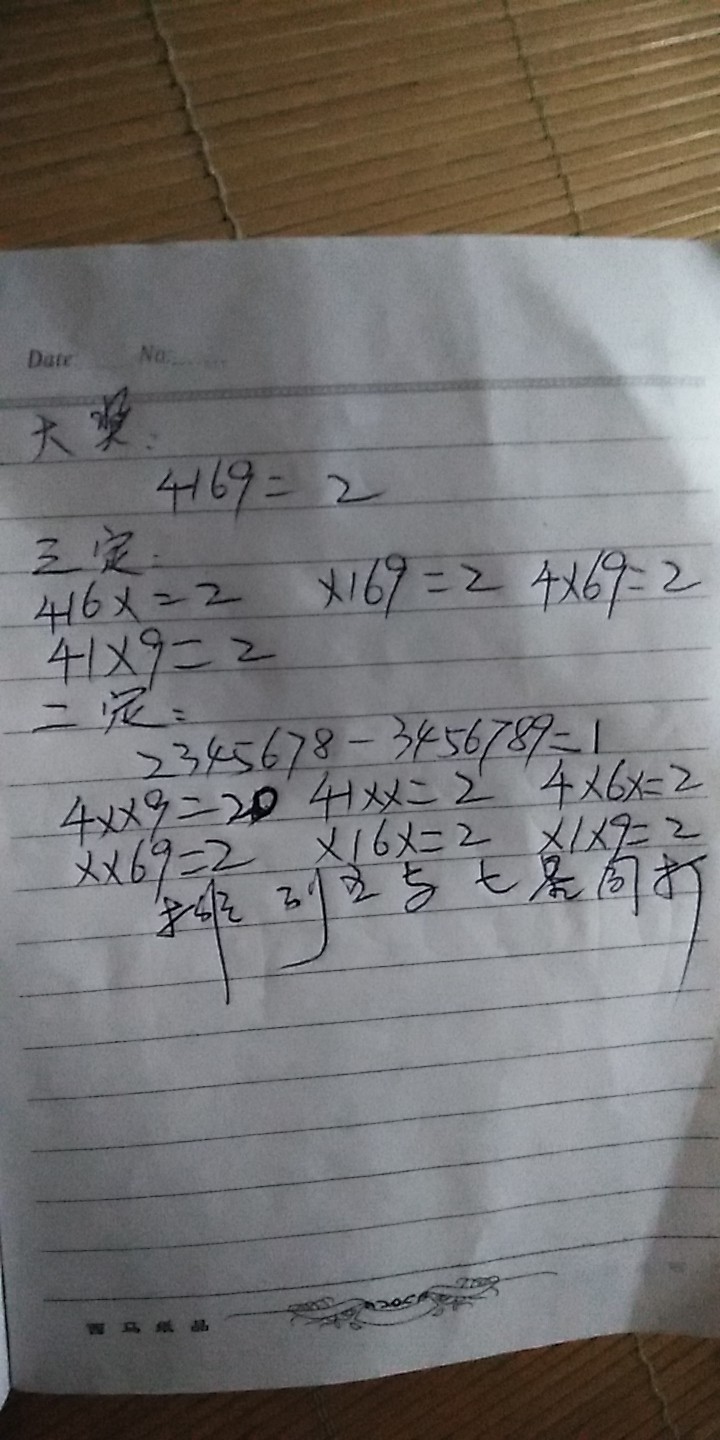 Date No:......
大奖:
4169=2
三定:
416x=2 x169=2 4x69=2
41x9=2
二定:
2345678-3456789=1
4xx9=20 41xx=2 4x6x=2
xx69=2 x16x=2 x1x9=2
排列五与七星同打
西马纸品